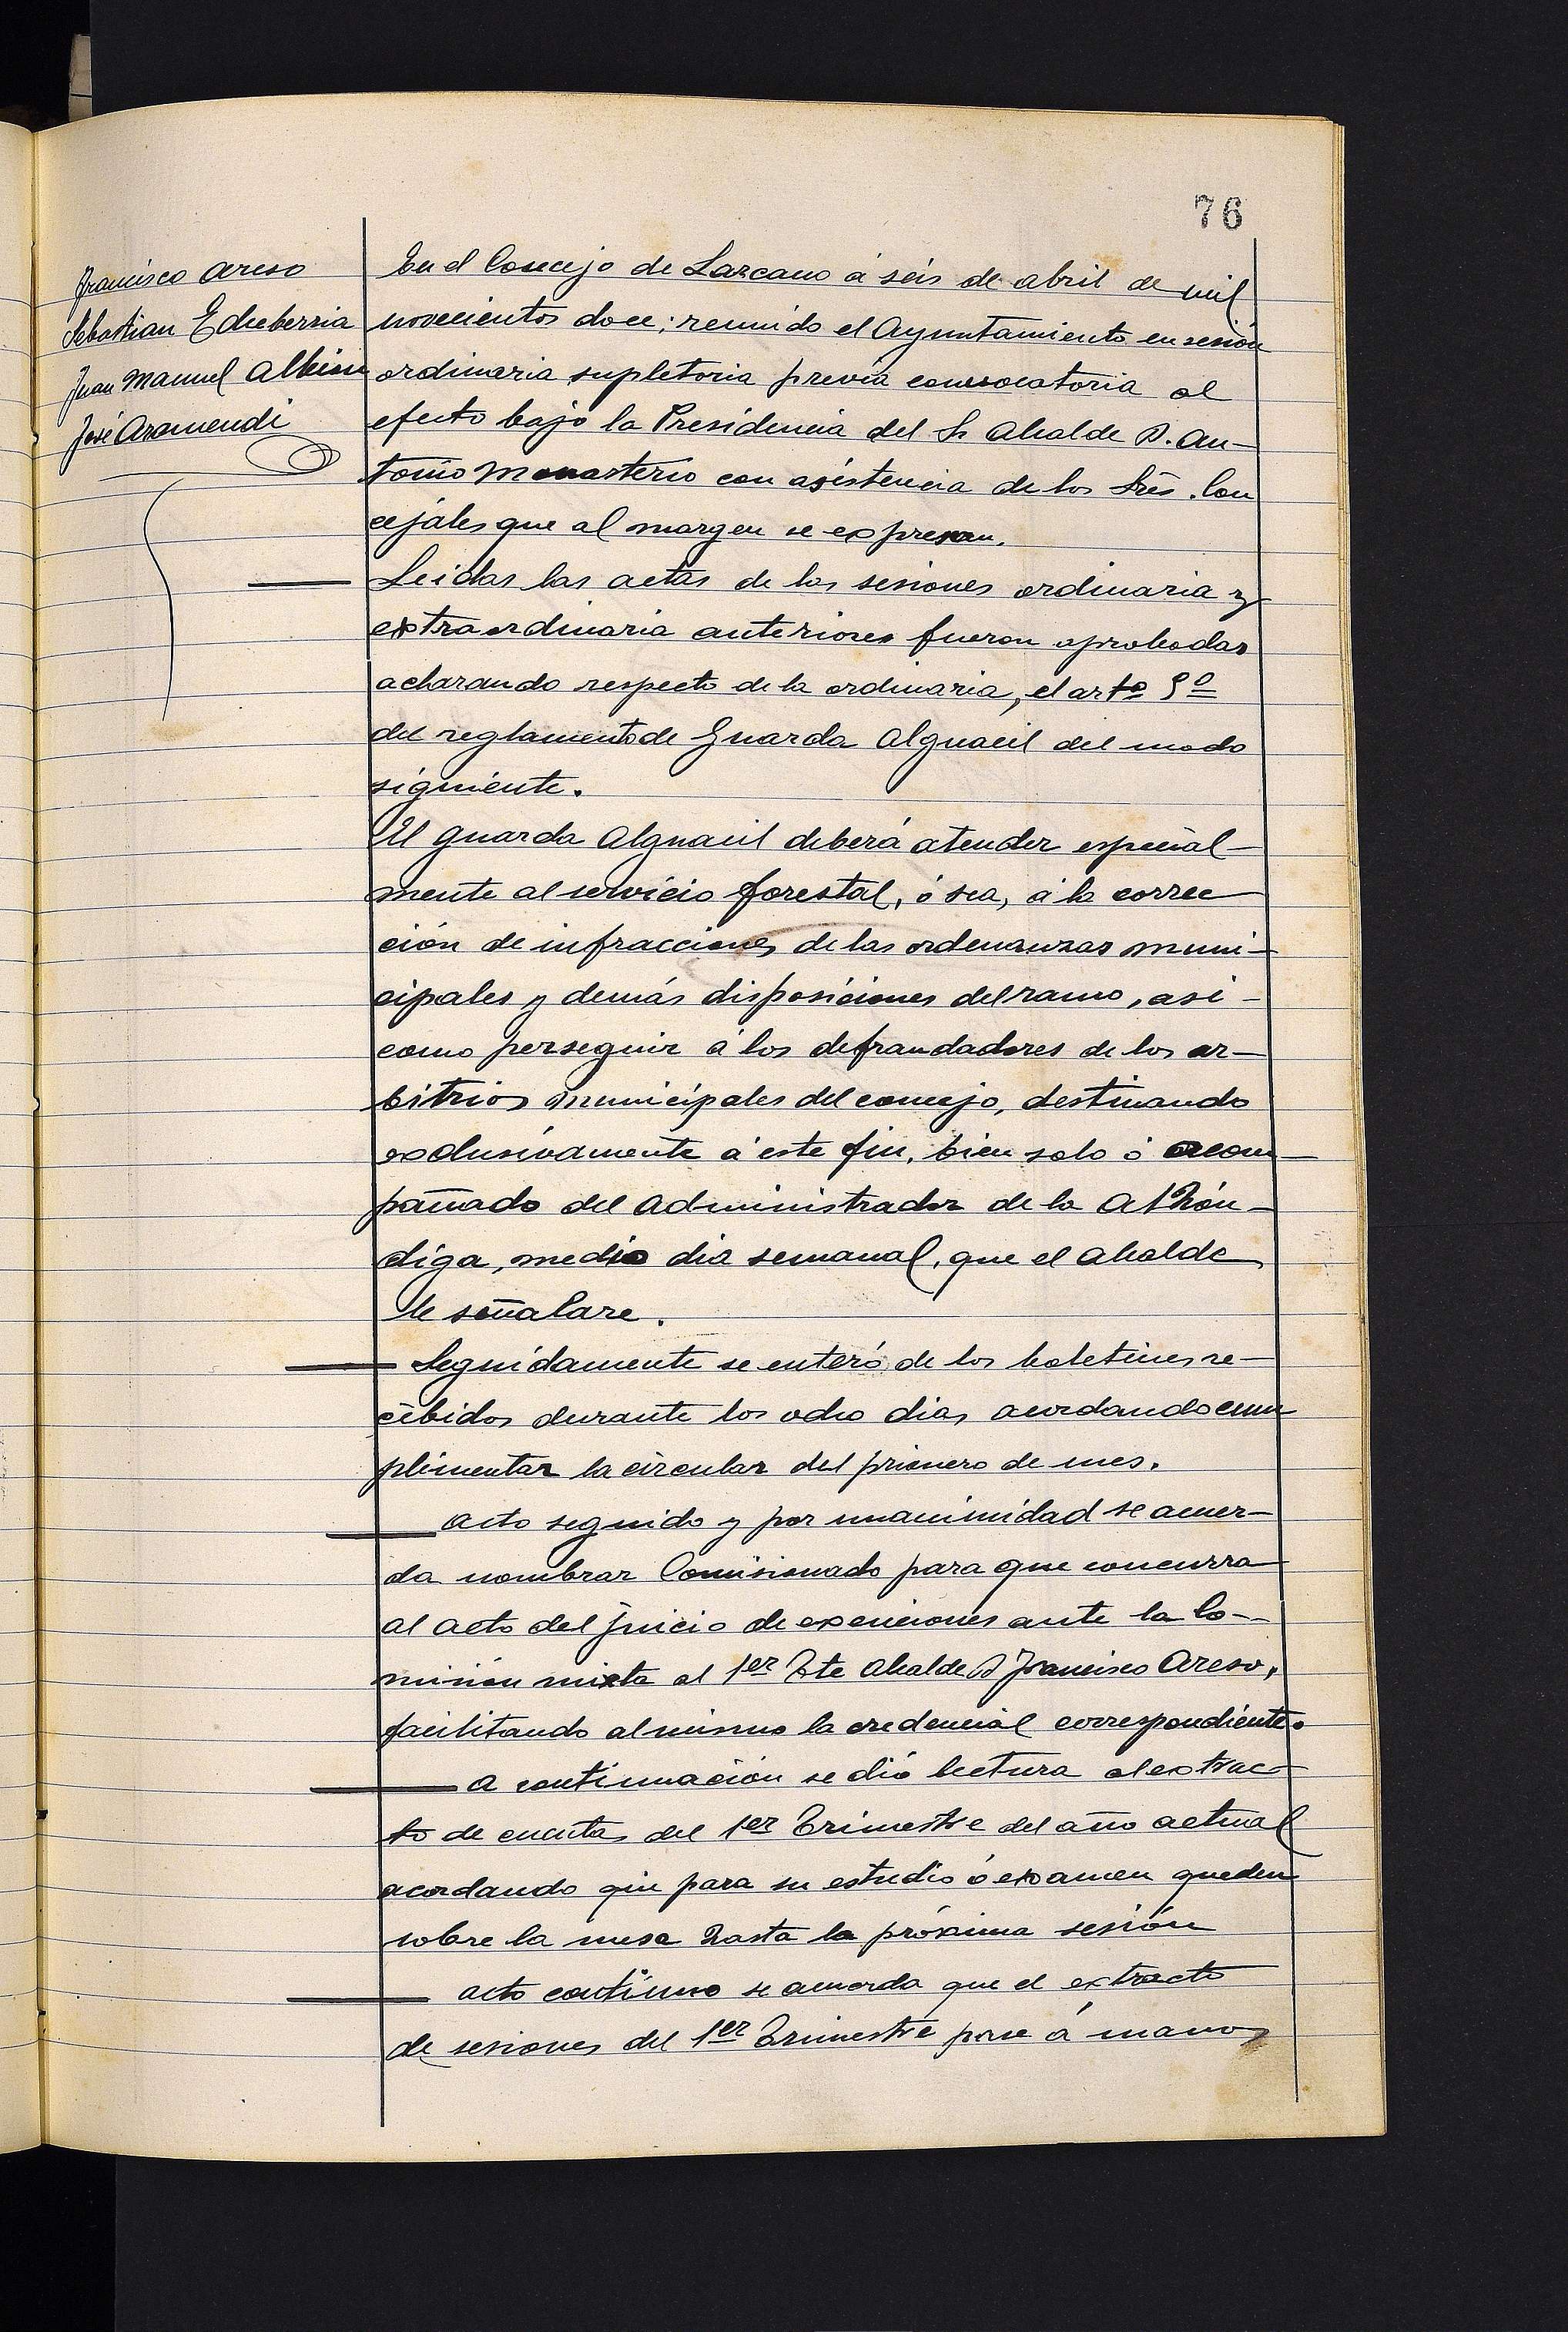 76
Francisco Areso
Sebastian Echeberria
Juan Manuel Albisu
José Aramendi
En el Concejo de Lazcano á seis de abril de mil
novecientos doce; reunido el Ayuntamiento en sesión
ordinaria supletoria previa convocatoria al
efecto bajo la Presidencia del Sr Alcalde D. An-
tonio Monasterio con asistencia de los Sres. Con
cejales que al margen se expresan.
Leidas las actas de las sesiones ordinaria y
extraordinaria anteriores fueron aprobadas
aclarando respecto de la ordinaria, el arto
del reglamento de Guarda Alguacil del modo
siguiente.
El guarda Alguacil deberá atender especial-
mente al servicio forestal, ó sea, á la correc
ción de infracciones de las ordenanzas muni-
cipales y demás disposiciones del ramo, asi-
como perseguir á los defraudadores de los ar-
bitrios municipales del concejo, destinando
exclusivamente á este fin, bien solo ó acom
pañado del Administrador de la Alhón-
diga, medio dia semanal, que el Alcalde
le señalare.
Seguidamente se enteró de los boletines re-
cibidos durante los ocho dias acordando cum
plimentar la circular del primero de mes.
Acto seguido y por unanimidad se acuer-
da nombrar Comisionado para que concurra
al acto del juicio de exenciones ante la Co-
misión mixta al 1er Tte Alcalde D Francisco Areso,
facilitando al mismo la credencial correspondiente.
A continuación se dió lectura al extrac-
to de cuentas del 1er Trimestre del año actual
acordando que para su estudio ó examen queden
sobre la mesa hasta la próxima sesión
Acto continuo se acuerda que el extracto
de sesiones del 1er Trimestre pase á manos